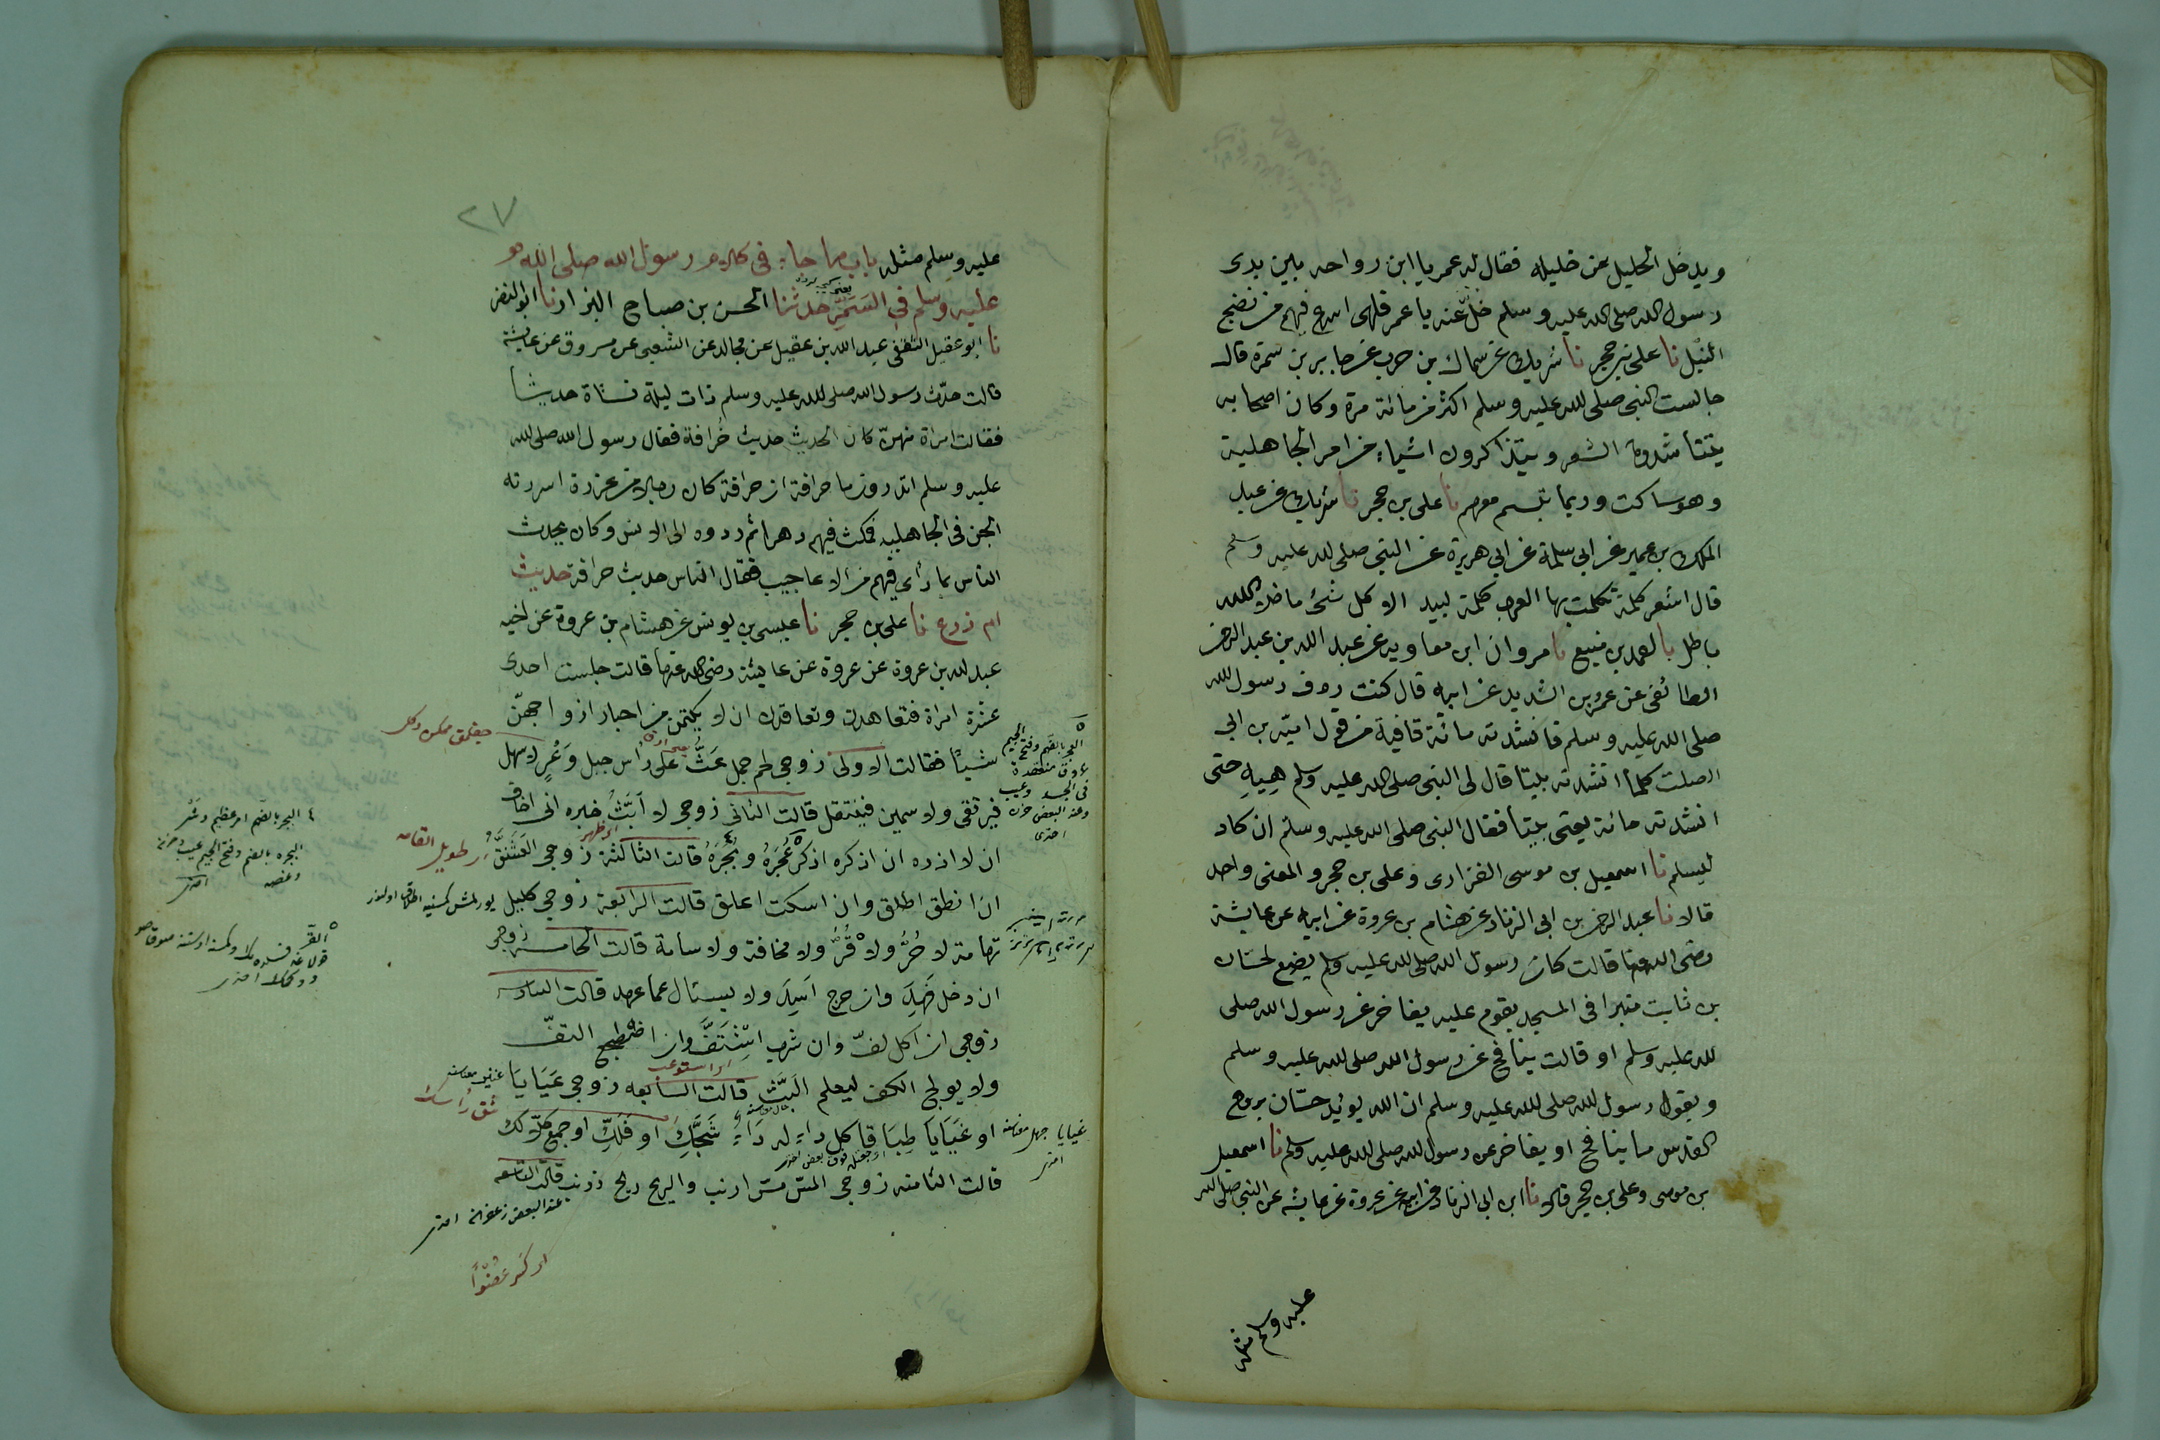 ويدخل الخليل عن خليله فقال له عمر يا ابن رواحه بين يدى
رسول الله صلى الله عليه وسلم خلّ عنه يا عمر فلهى اسرع فيهم من نضح
النبل نا على بن حجر نا شريك عن سماك بن حرب عن جابر بن سمرة قال
جالست النبى صلى الله عليه وسلم اكثر من مائة مرة وكان اصحابه
يتناشدون الشعر ويتذاكرون اشياء من امر الجاهلية
وهو ساكت وربما تبسم معهم نا على بن حجر نا شريك عن عبد
الملك بن عمير عن ابى سلمة عن ابي هريرة عن النبي صلى الله عليه وسلم
قال اشعر كلمة تكلمت بها العرب كلمة لبيد الا كل شئ ما خلا الله
باطل نا احمد بن منيع نا مروان ابن معاويه عن عبد الله بن عبد الرحمن
الطائفى عن عمرو بن الشريد عن ابيه قال كنت ردف رسول الله
صلى الله عليه وسلم فانشدته مائة قافية من قول امية بن ابى
الصلت كلما انشدته بيتا قال لى النبى صلى الله عليه وسلم هيه حتى
انشدته مائة يعنى بيتا فقال النبى صلى الله عليه وسلم ان كاد
ليسلم نا اسمعيل بن موسى الفزارى وعلى بن حجر والمعنى واحد
قالا نا عبد الرحمن بن ابى الزناد عن هشام بن عروة عن ابيه عن عايشة
رضى الله عنها قالت كان رسول الله صلى الله عليه وسلم يضع لحسان
بن ثابت منبرا فى المسجد يقوم عليه يفاخر عن رسول الله صلى
الله عليه وسلم او قالت ينافح عن رسول الله صلى الله عليه وسلم
ويقول رسول الله صلى الله عليه وسلم ان الله يؤيد حسّان بروح
القدس ما ينافح او يفاخر عن رسول الله صلى الله عليه وسلم نا اسمعيل
بن موسى وعلى بن حجر قالا نا ابن ابى الزناد عن ابيه عن عروة عن عايشه عن النبى صلى الله
عليه وسلم مثله
٢٧
عليه وسلم مثله باب ما جاء فى كلام رسول الله صلى الله
عليه وسلم فى السَّمَرِ حدثنا الحسن بن صباح البزار نا ابو النضر
نا ابو عقيل الثقفى عبد الله بن عقيل عن مجالد عن الشعبى عن مسروق عن عايشة
قالت حدّث رسول الله صلى الله عليه وسلم ذات ليلة نساءه حديثا
فقالت امراة منهنّ كان الحديث حديث خُرافة فقال رسول الله صلى الله
عليه وسلم اتدرون ما خرافة ان خرافة كان رجلا من عزرة اسرته
الجن فى الجاهليه فمكث فيهم دهرا ثم ردوه الى الانس وكان يحدث
الناس بما راى فيهم من الاعاجيب فقال الناس حديث خرافة حديث
ام زرع نا على بن حجر نا عيسى بن يونس عن هشام بن عروة عن اخيه
عبد الله بن عروة عن عروة عن عايشة رضى الله عنها قالت جلست احدى
عشرة امراة فتعاهدن وتعاقدن ان لا يكتمن من اخبار ازواجهنّ
شيئا فقالت الاولى زوجى لحم جمل غَثٌّ على راس جبل وَعْرٍ لا سهل
فيرتقى ولا سمين فينتقل قالت الثانى زوجى لا اَبُثُّ خبره انى اخاف
ان لا اذره ان اذكره اذكر عُجَرَهُ وبُجَرَهُ قالت الثالثة زوجى العَشَنَّقُ
ان انطق اطلق وان اسكت اعلق قالت الرابعة زوجى كليل
تهامة لا حُرٌّ ولا قُرٌّ ولا مخافة ولا سامة قالت الخامسة زوجى
ان دخل فَهِدَ وان خرج اَسِدَ ولا يسئال عما عهد قالت السادسه
زوجى ان اكل لفّ وان شرب اشْتَفَّ وان اضطجع التفّ
ولا يولج الكف ليعلم البَثَّ قالت السابعه زوجى عَيَايَا
او غَيَايَا طَبَاقا كل داء له دَاءٌ شَجَّكِ او فَلَّكِ او جمع كلًّا لك
قالت الثامنه زوجى المسّ مسّ ارنب والريح ريح زرنب قالت التاسعه
طويل القامه
اى كسر عضوًا